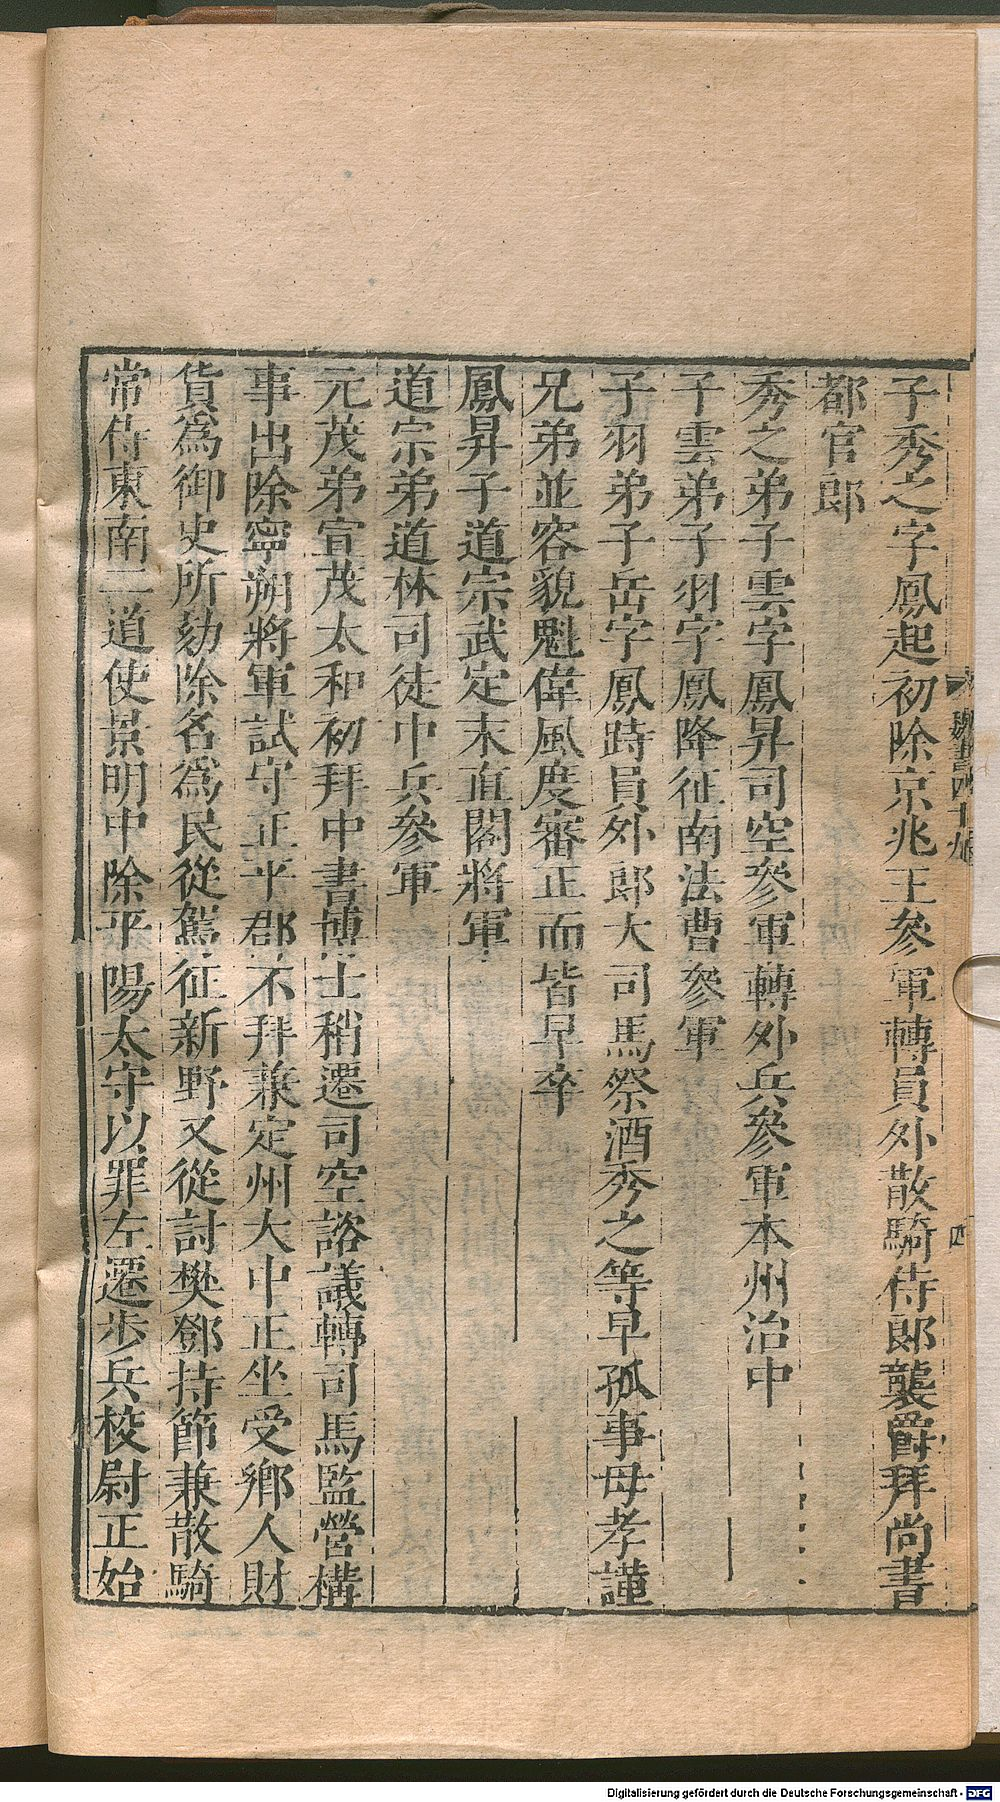 子秀之字鳳起初除京兆王參軍轉員外散騎侍郎襲爵拜尚書
都官郎
秀之弟子雲字鳳昇司空參軍轉外兵參軍本州治中
子雲弟子羽字鳳降征南法曹參軍
子羽弟子岳字鳳跱員外郎大司馬祭酒秀之等早孤事母孝謹
兄弟並容貌魁偉風度審正而皆早卒
鳳昇子道宗武定末直閤將軍
道宗弟道林司徒中兵參軍
元茂弟宣茂太和初拜中書博士稍遷司空諮議轉司馬監營構
事出除寧朔將軍試守正平郡不拜兼定州大中正坐受鄉人財
貨為御史所劾除名為民從駕征新野又從討樊鄧持節兼散騎
常侍東南二道使景明中除平陽太守以罪左遷步兵校尉正始
魏書四十九
四
Digitalisierung gefördert durch die Deutsche Forschungsgemeinschaft - DFG